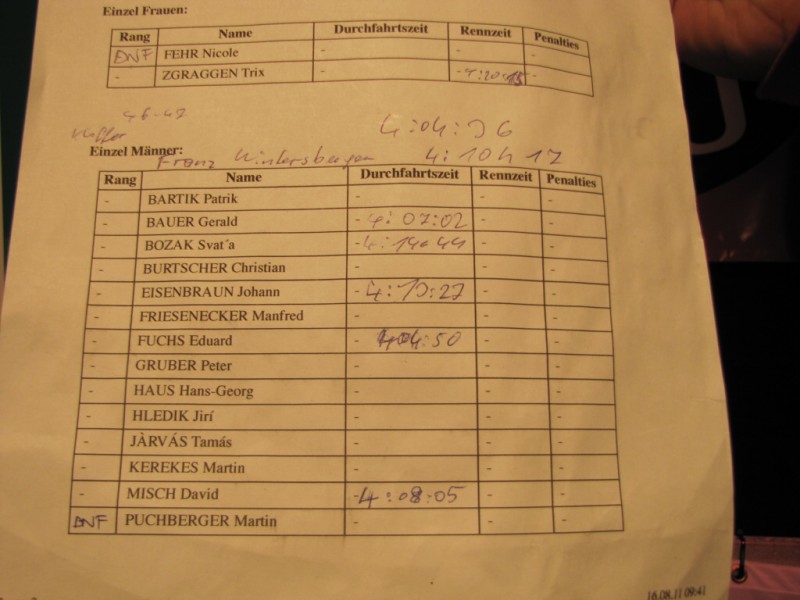 Einzel Frauen:
Rang Name Durchfahrtszeit Rennzeit Penalties
DNF FEHR Nicole - - -
- ZGRAGGEN Trix - -
46-47
4:04:36
Einzel Männer: Franz 4:10h17
Rang Name Durchfahrtszeit Rennzeit Penalties
- BARTIK Patrik - - -
- BAUER Gerald - 4:07:02 - -
- BOZAK Svat´a - 4:14:44 - -
- BURTSCHER Christian - - -
- EISENBRAUN Johann - - -
- FRIESENECKER Manfred - - -
- FUCHS Eduard - 4:04:50 - -
- GRUBER Peter - - -
- HAUS Hans-Georg - - -
- HLEDIK Jirí - - -
- JÀRVÁS Tamás - - -
- KEREKES Martin - - -
- MISCH David - 4:08:05 - -
DNF PUCHBERGER Martin - - -
16.08.11 09:41